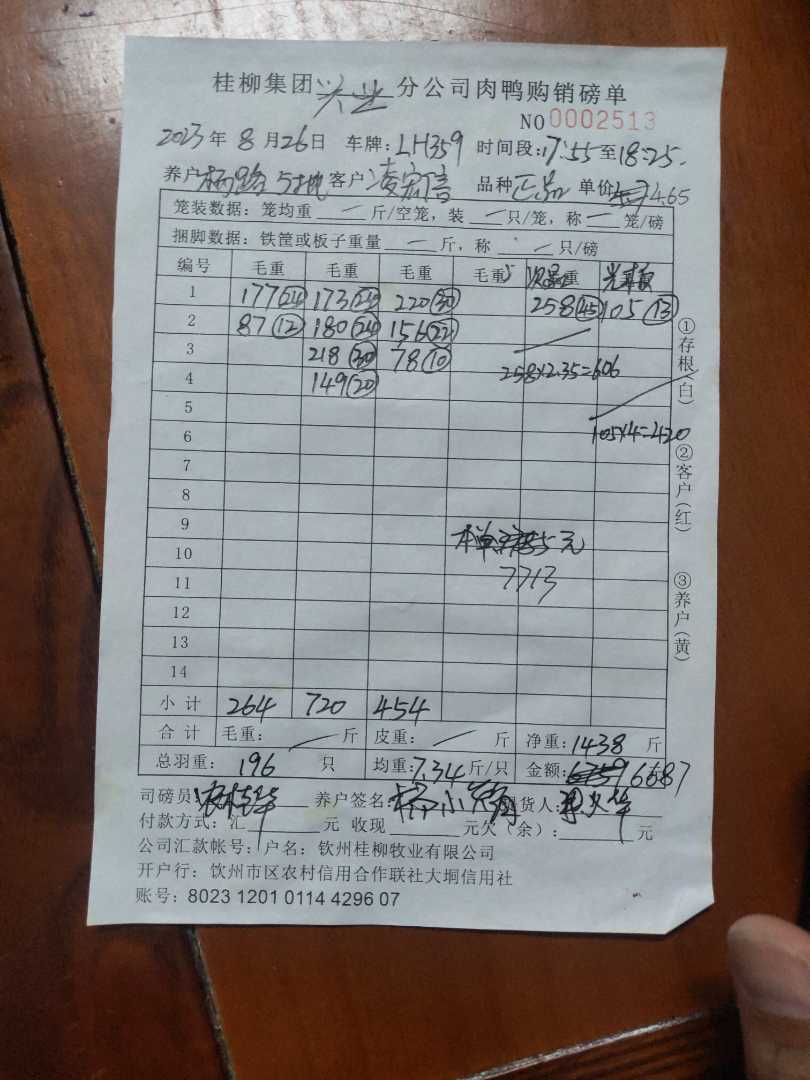 桂柳集团兴业分公司肉鸭购销磅单
NO 0002513
2023年8月26日 车牌:LH359 时间段:17:55至18:25.
养户 杨 5地 客户 凌宏信 品种 正品 单价 4.65
笼装数据:笼均重 一 斤/空笼,装 一 只/笼,称 一 笼/磅
捆脚数据:铁筐或板子重量 一 斤,称 一 只/磅
编号 毛重 毛重 毛重 毛重 次品重 光鸭
1 177(24) 173(23) 220(30) 258(45) 105(13)
2 87(12) 180(24) 156(22)
3 218(30) 78(10) 258×2.35=606
4 149(20)
5
6 105×4=420
7
8
9 本单 5元
10 7713
11
12
13
14
小计 264 720 454
合计 毛重: 斤 皮重: 斤 净重:1438 斤
总羽重: 196 只 均重:7.34斤/只 金额: 6687
司磅员: 养户签名: 小 提货人:
付款方式:汇 元 收现 元欠(余): 元
公司汇款帐号:户名:钦州桂柳牧业有限公司
开户行:钦州市区农村信用合作联社大垌信用社
账号:8023 1201 0114 4296 07
①存根(白)
②客户(红)
③养户(黄)